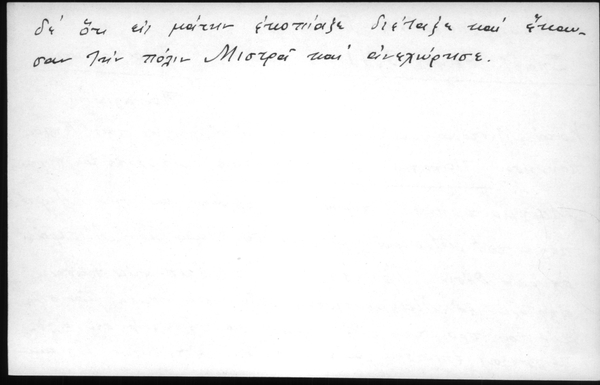 δέ ὅτι εἰς μάτην ἐκοπίαξε διέταξε καί ἔκαυ-
σαν τήν πόλιν Μιστρᾶ καί ἀνεχώρησε.